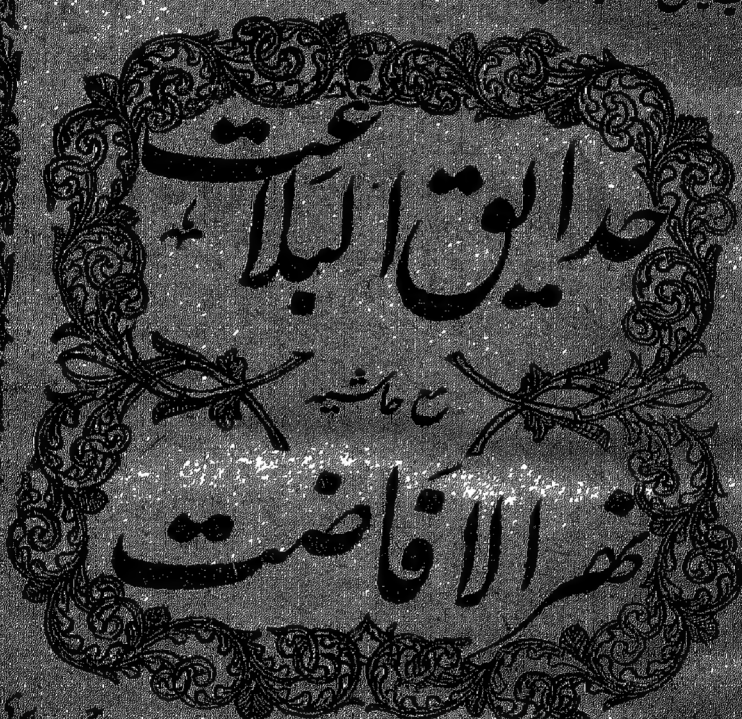 حدایق البلاغت
مع حاشیہ
نہر الافاضت